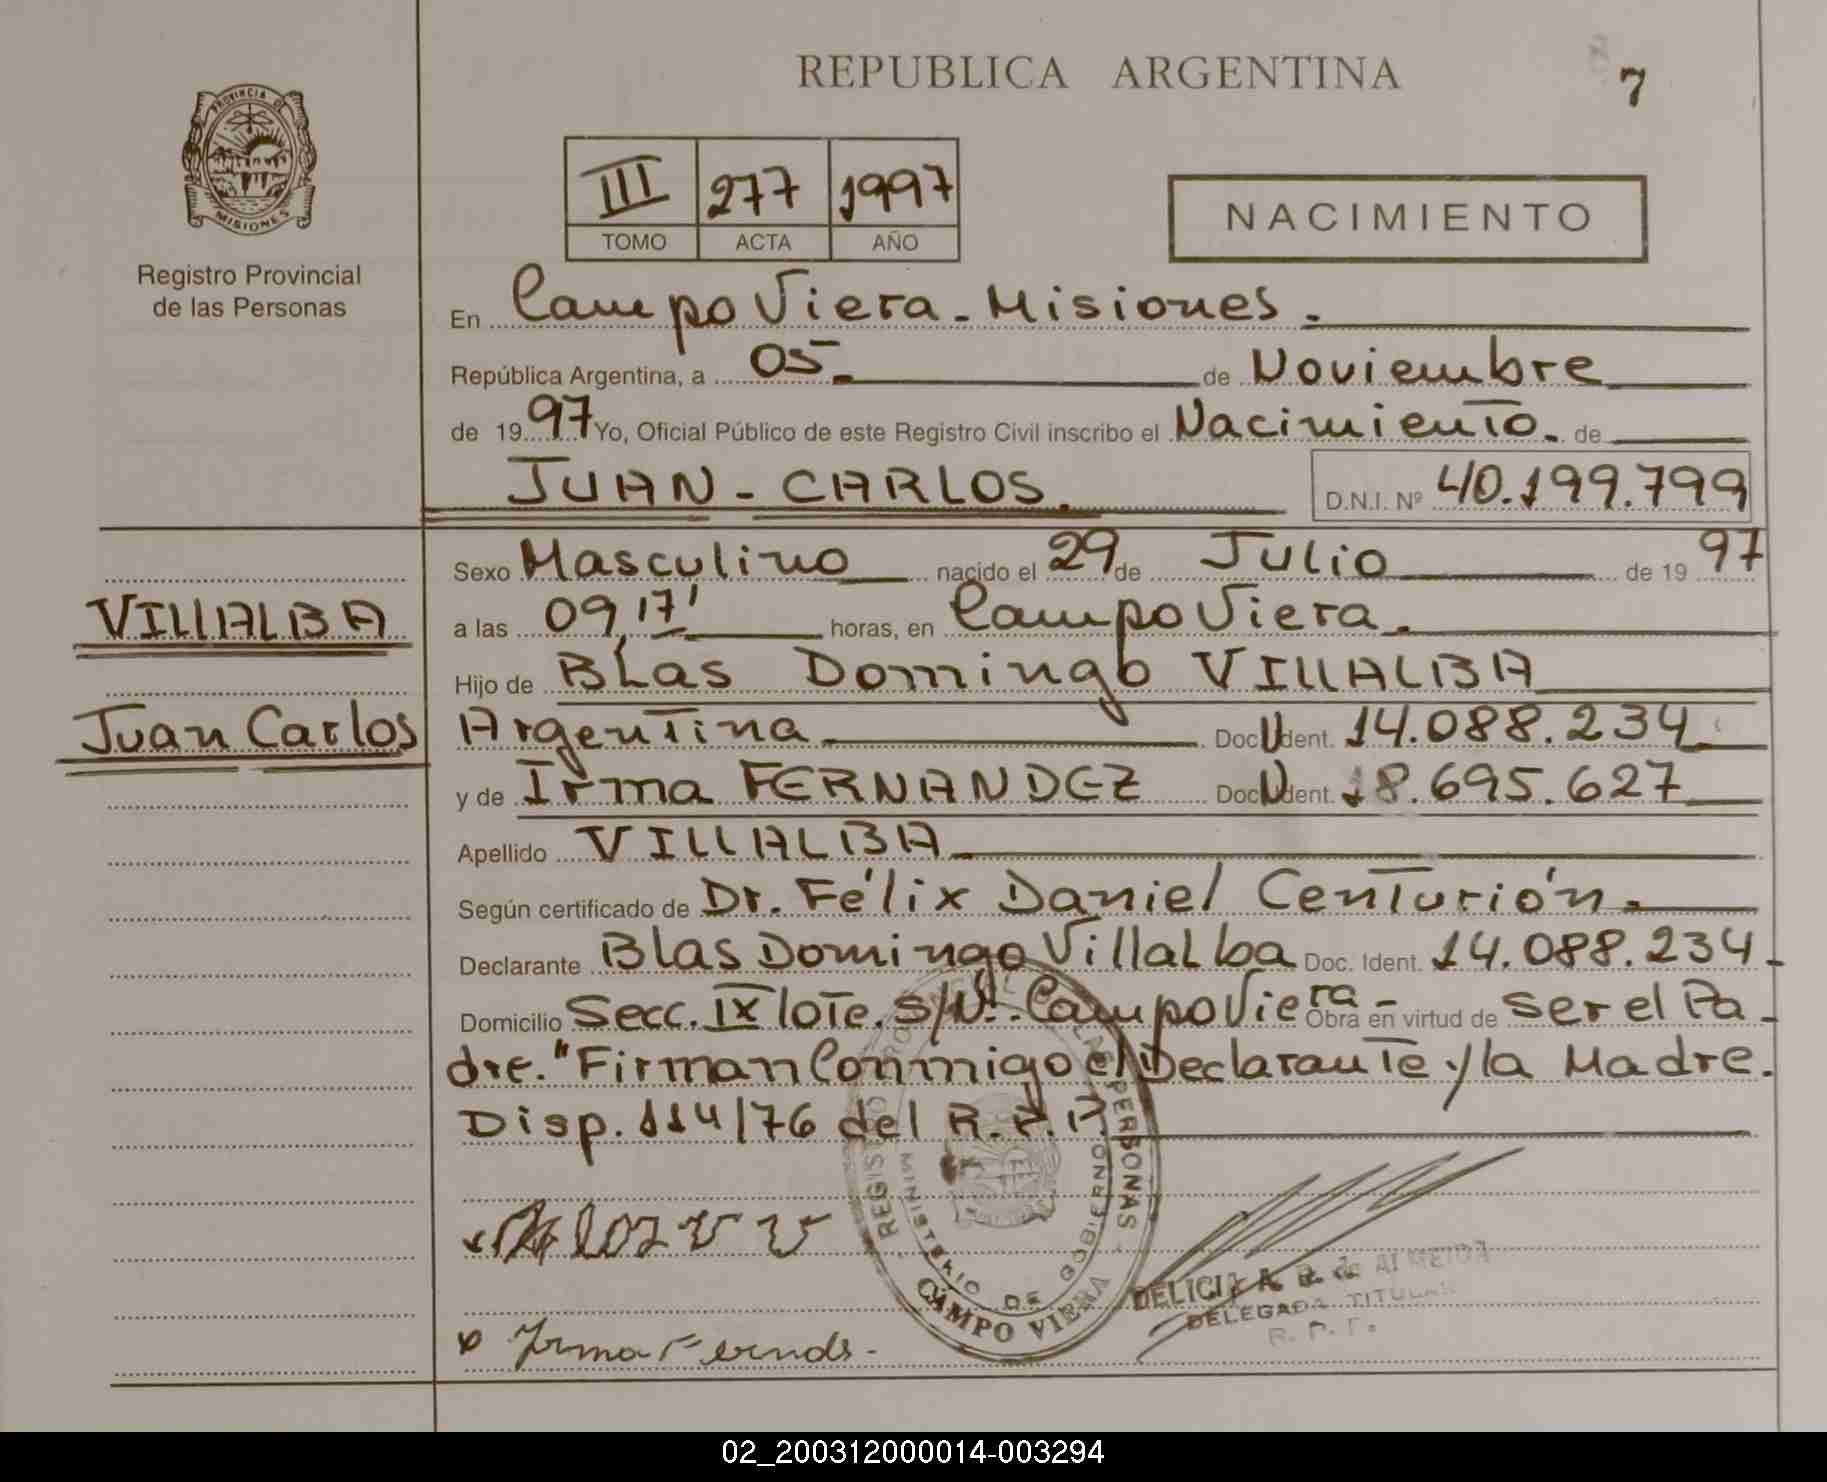 REPUBLICA ARGENTINA
7
PROVINCIA DE
MISIONES
Registro Provincial
de las Personas
III 277 1997
TOMO ACTA AÑO
NACIMIENTO
En Campo Viera - Misiones.
República Argentina, a 05 de Noviembre
de 1997 Yo, Oficial Público de este Registro Civil inscribo el Nacimiento. de
JUAN - CARLOS. D.N.I. Nº 40.199.799
Sexo Masculino nacido el 29 de Julio de 1997
VILLALBA
a las 09,17' horas, en Campo Viera.
Hijo de Blas Domingo VILLALBA
Juan Carlos
Argentina Doc U Ident. 14.088.234
y de Irma FERNANDEZ Doc U Ident. 18.695.627
Apellido VILLALBA
Según certificado de Dr. Félix Daniel Centurión.
Declarante Blas Domingo Villalba Doc. Ident. 14.088.234
Domicilio Secc. IX lote. s/Nº. Campo Viera - Obra en virtud de ser el Pa-
dre. "Firman Conmigo el Declarante y la Madre.
Disp. 114/76 del R.P.P.
REGISTRO PERSONAS
MINISTERIO DE GOBIERNO
CAMPO VIERA
DELICIA A. R. de ALMEIDA
DELEGADA TITULAR
R. P. P.
Irma Fernds.
02_200312000014-003294